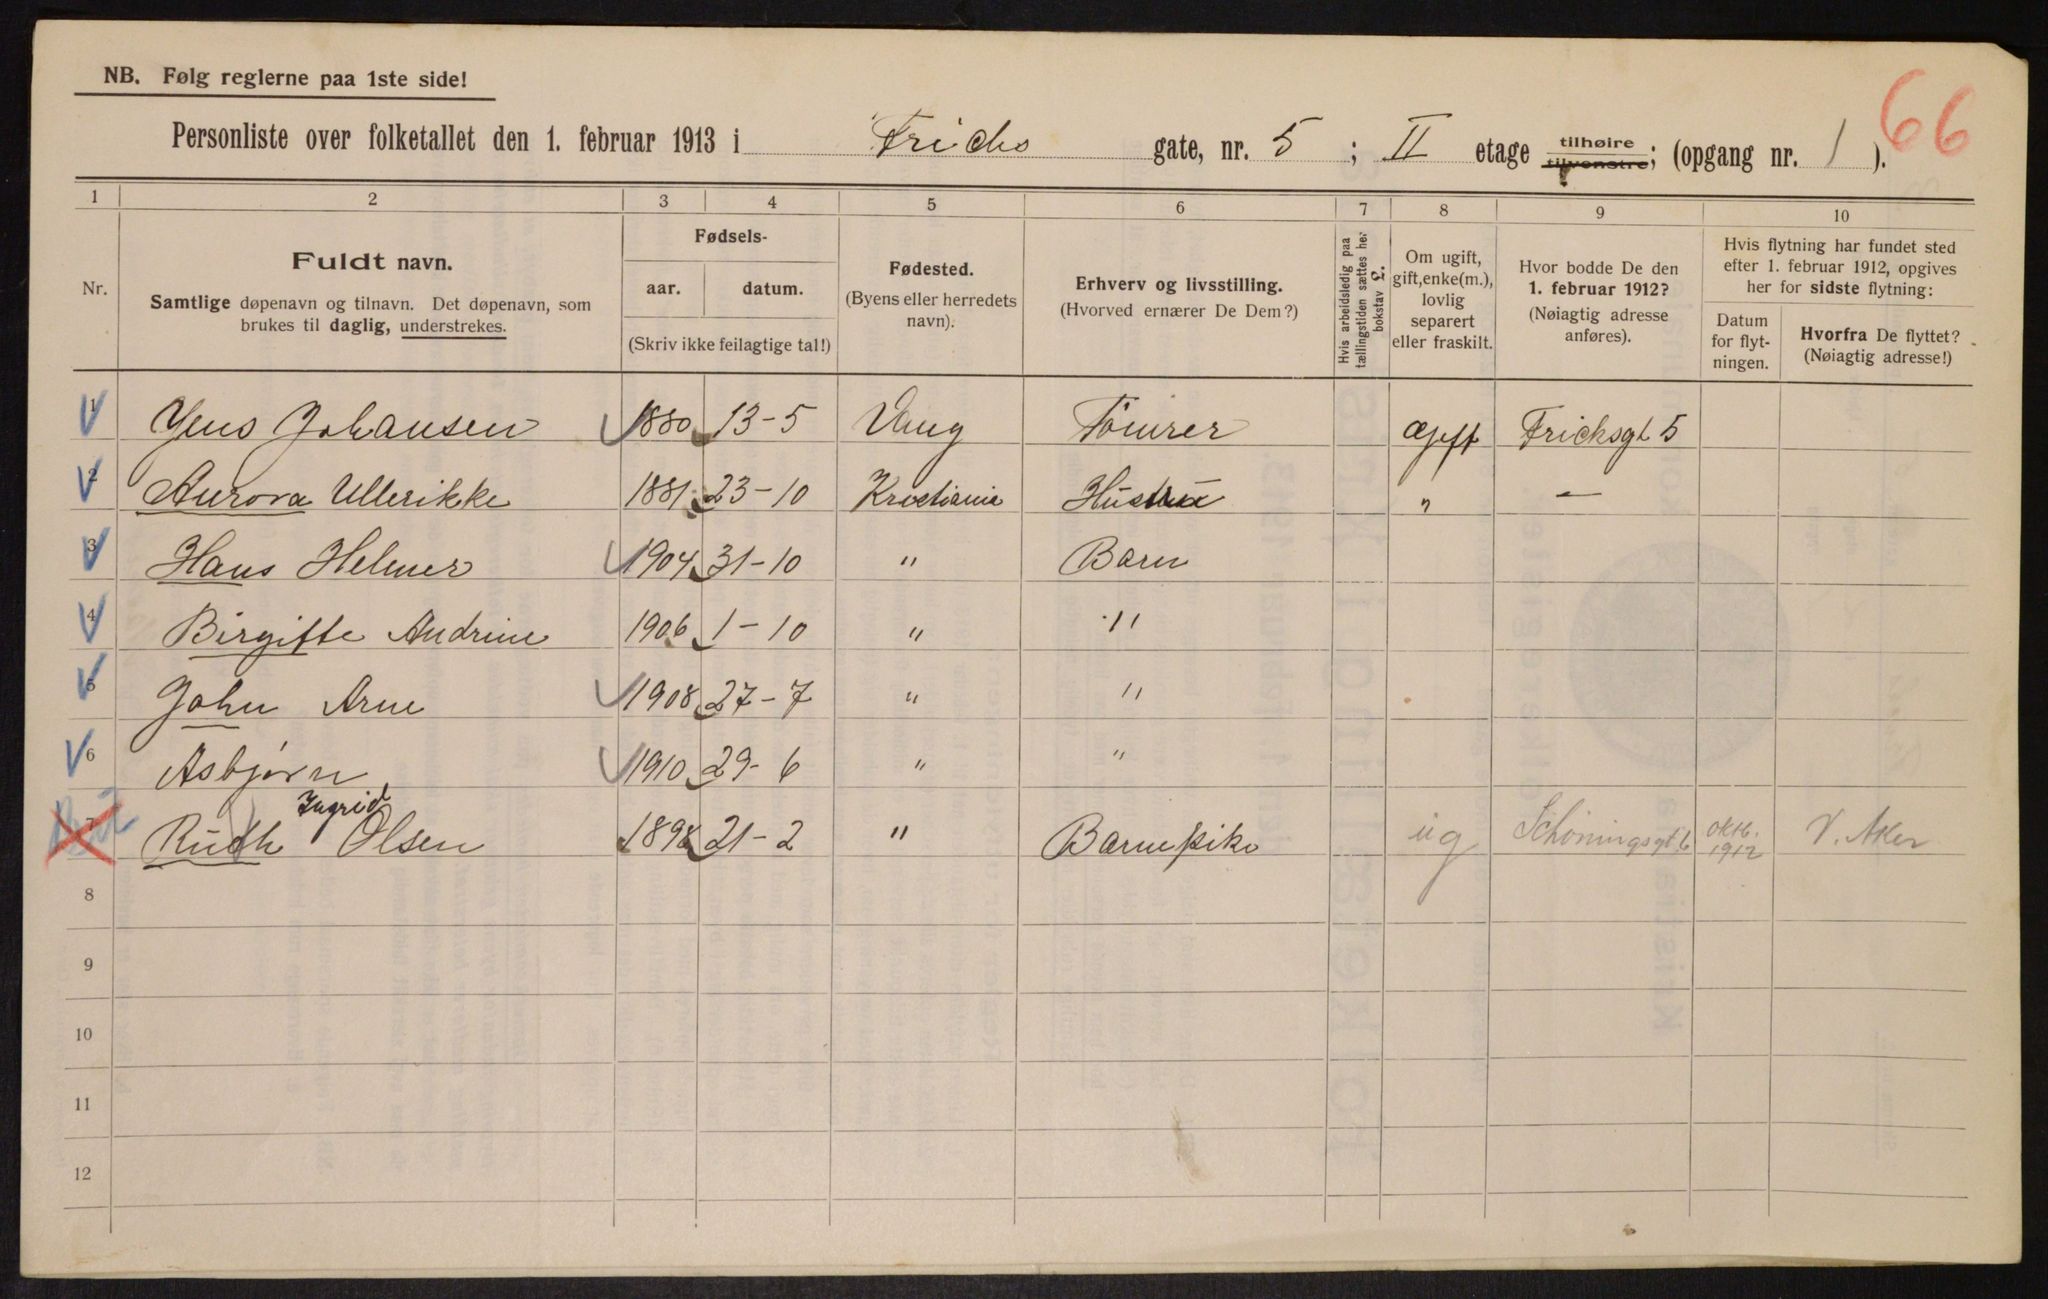 NB. Følg reglerne paa 1ste side!
66
Personliste over folketallet den 1. februar 1913 i Frichs gate, nr. 5 ; II etage tilhøire tilvenstre; (opgang nr. 1 ).
1 2 3 4 5 6 7 8 9 10
Nr.
Fuldt navn.
Samtlige døpenavn og tilnavn. Det døpenavn, som
brukes til daglig, understrekes.
Fødsels-
aar. datum.
(Skriv ikke feilagtige tal!)
Fødested.
(Byens eller herredets
navn).
Erhverv og livsstilling.
(Hvorved ernærer De Dem?)
Hvis arbeidsledig paa
tællingstiden sættes her
bokstav L.
Om ugift,
gift, enke(m.),
lovlig
separert
eller fraskilt.
Hvor bodde De den
1. februar 1912?
(Nøiagtig adresse
anføres).
Hvis flytning har fundet sted
efter 1. februar 1912, opgives
her for sidste flytning:
Datum
for flyt-
ningen.
Hvorfra De flyttet?
(Nøiagtig adresse!)
1 Jens Johansen 1880 13-5 Vang Tömrer Gift Fricksgt 5
2 Aurora Ullerikke 1881 23-10 Kristiania Hustru " —
3 Hans Helmer 1904 31-10 " Barn
4 Birgitte Andrine 1906 1-10 " "
5 John Arne 1908 27-7 " "
6 Asbjørn 1910 29-6 " "
7 Ruth Ingrid Olsen 1898 21-2 " Barnepike ug Schöningsgt 6 oktb. 1912 V. Aker
8
9
10
11
12